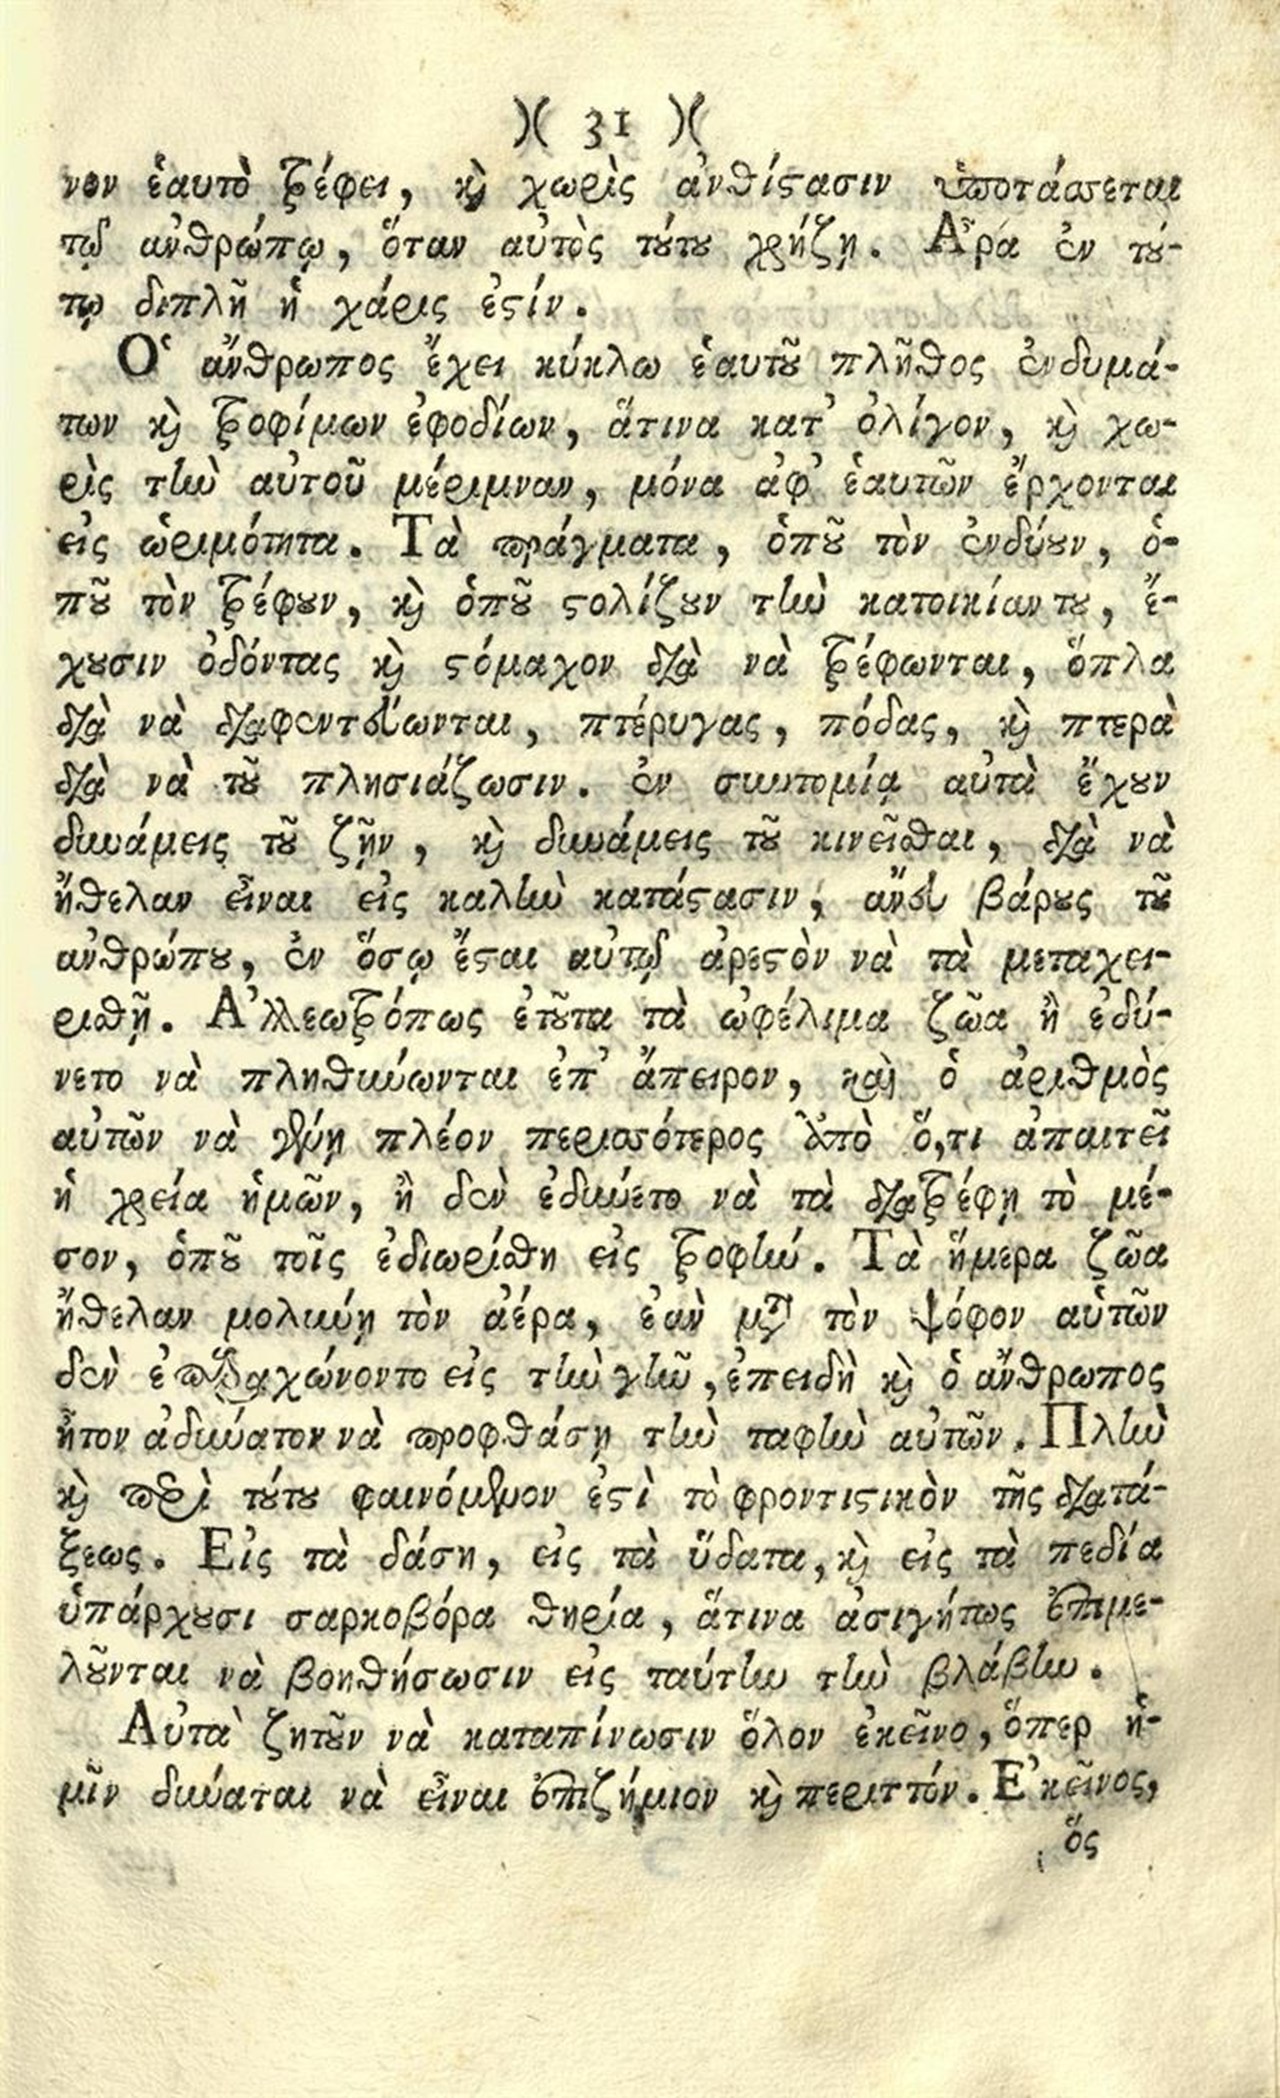 )( 31 )(
νον ἑαυτὸ τρέφει, καὶ χωρὶς ἀνθίστασιν ὑποτάσσεται
τῷ ἀνθρώπῳ, ὅταν αὐτὸς τούτου χρήζῃ. Ἄρα ἐν τού-
τῳ διπλῆ ἡ χάρις ἐστίν.
Ὁ ἄνθρωπος ἔχει κύκλω ἑαυτοῦ πλῆθος ἐνδυμά-
των καὶ τροφίμων ἐφοδίων, ἅτινα κατ' ὀλίγον, καὶ χω-
ρὶς τὴν αὐτοῦ μέριμναν, μόνα ἀφ' ἑαυτῶν ἔρχονται
εἰς ὡριμότητα. Τὰ πράγματα, ὁποῦ τὸν ἐνδύουν, ὁ-
ποῦ τὸν τρέφουν, καὶ ὁποῦ στολίζουν τὴν κατοικίαν του, ἔ-
χουσιν ὀδόντας καὶ στόμαχον διὰ νὰ τρέφωνται, ὅπλα
διὰ νὰ διαφεντεύωνται, πτέρυγας, πόδας, καὶ πτερὰ
διὰ νὰ τοῦ πλησιάζωσιν. ἐν συντομίᾳ αὐτὰ ἔχουν
δυνάμεις τοῦ ζῇν, καὶ δυνάμεις τοῦ κινεῖσθαι, διὰ νὰ
ἤθελαν εἶναι εἰς καλὴν κατάστασιν, ἄνευ βάρους τοῦ
ἀνθρώπου, ἐν ὅσῳ ἔσται αὐτῷ ἀρεστὸν νὰ τὰ μεταχει-
ρισθῇ. Ἀλλεωτρόπως ἐτοῦτα τὰ ὠφέλιμα ζῶα ἢ ἐδύ-
νετο νὰ πληθυνύωνται ἐπ' ἄπειρον, καὶ ὁ ἀριθμὸς
αὐτῶν νὰ γένῃ πλέον περισσότερος ἀπὸ ὅ,τι ἀπαιτεῖ
ἡ χρεία ἡμῶν, ἢ δὲν ἐδύνετο νὰ τὰ διατρέφῃ τὸ μέ-
σον, ὁποῦ τοῖς ἐδιωρίσθη εἰς τροφήν. Τὰ ἥμερα ζῶα
ἤθελαν μολύνῃ τὸν ἀέρα, ἐὰν μετὰ τὸν ψόφον αὐτῶν
δὲν ἐπαραχώνοντο εἰς τὴν γῆν, ἐπειδὴ καὶ ὁ ἄνθρωπος
ἦτον ἀδύνατον νὰ προφθάσῃ τὴν ταφὴν αὐτῶν. Πλὴν
καὶ περὶ τούτου φαινόμενον ἐστὶ τὸ φροντιστικὸν τῆς διατά-
ξεως. Εἰς τὰ δάση, εἰς τὰ ὕδατα, καὶ εἰς τὰ πεδία
ὑπάρχουσι σαρκοβόρα θηρία, ἅτινα ἀσιγήτως ἐπιμε-
λοῦνται νὰ βοηθήσωσιν εἰς ταύτην τὴν βλάβην.
Αὐτὰ ζητοῦν νὰ καταπίνωσιν ὅλον ἐκεῖνο, ὅπερ ἡ-
μῖν δύναται νὰ εἶναι ἐπιζήμιον καὶ περιττόν. Ἐκεῖνος,
ὅς